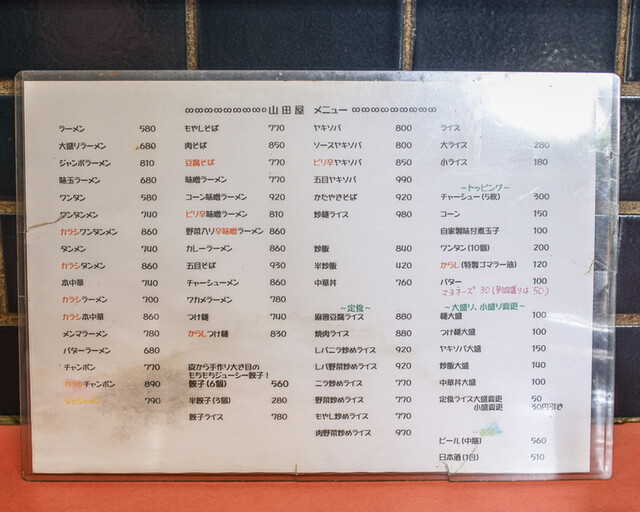 ∞∞∞∞∞∞∞∞° 山田屋 メニュー ∞∞∞∞∞∞∞∞∞
ラーメン 580
大盛りラーメン 680
ジャンボラーメン 810
味玉ラーメン 680
ワンタン 580
ワンタンメン 740
カラシワンタンメン 860
タンメン 740
カラシタンメン 860
本中華 740
カラシラーメン 700
カラシ本中華 860
メンマラーメン 780
バターラーメン 680
チャンポン 770
カラシチャンポン 890
ジャジャメン 790
もやしそば 770
肉そば 850
豆腐そば 770
味噌ラーメン 770
コーン味噌ラーメン 920
ピリ辛味噌ラーメン 810
野菜入り辛味噌ラーメン 860
カレーラーメン 860
五目そば 930
チャーシューメン 860
ワカメラーメン 780
つけ麺 740
からしつけ麺 830
皮から手作り大き目の
もちもちジューシー餃子！
餃子(6個) 560
半餃子(3個) 280
餃子ライス 780
ヤキソバ 800
ソースヤキソバ 800
ピリ辛ヤキソバ 850
五目ヤキソバ 990
かたやきそば 920
炒麺ライス 980
炒飯 840
半炒飯 420
中華丼 760
～定食～
麻婆豆腐ライス 880
焼肉ライス 880
レバニラ炒めライス 920
レバ野菜炒めライス 920
ニラ炒めライス 770
野菜炒めライス 770
もやし炒めライス 770
肉野菜炒めライス 970
ライス
大ライス 280
小ライス 180
～トッピング～
チャーシュー(5枚) 300
コーン 150
自家製味付煮玉子 100
ワンタン(10個) 200
からし(特製ゴマラー油) 120
バター 100
マヨネーズ 30
～大盛り、小盛り変更～
麺大盛 100
つけ麺大盛 100
ヤキソバ大盛 150
炒飯大盛 140
中華丼大盛 100
定食ライス大盛変更 50
小盛変更 30円引き
ビール(中瓶) 560
日本酒(1合) 510